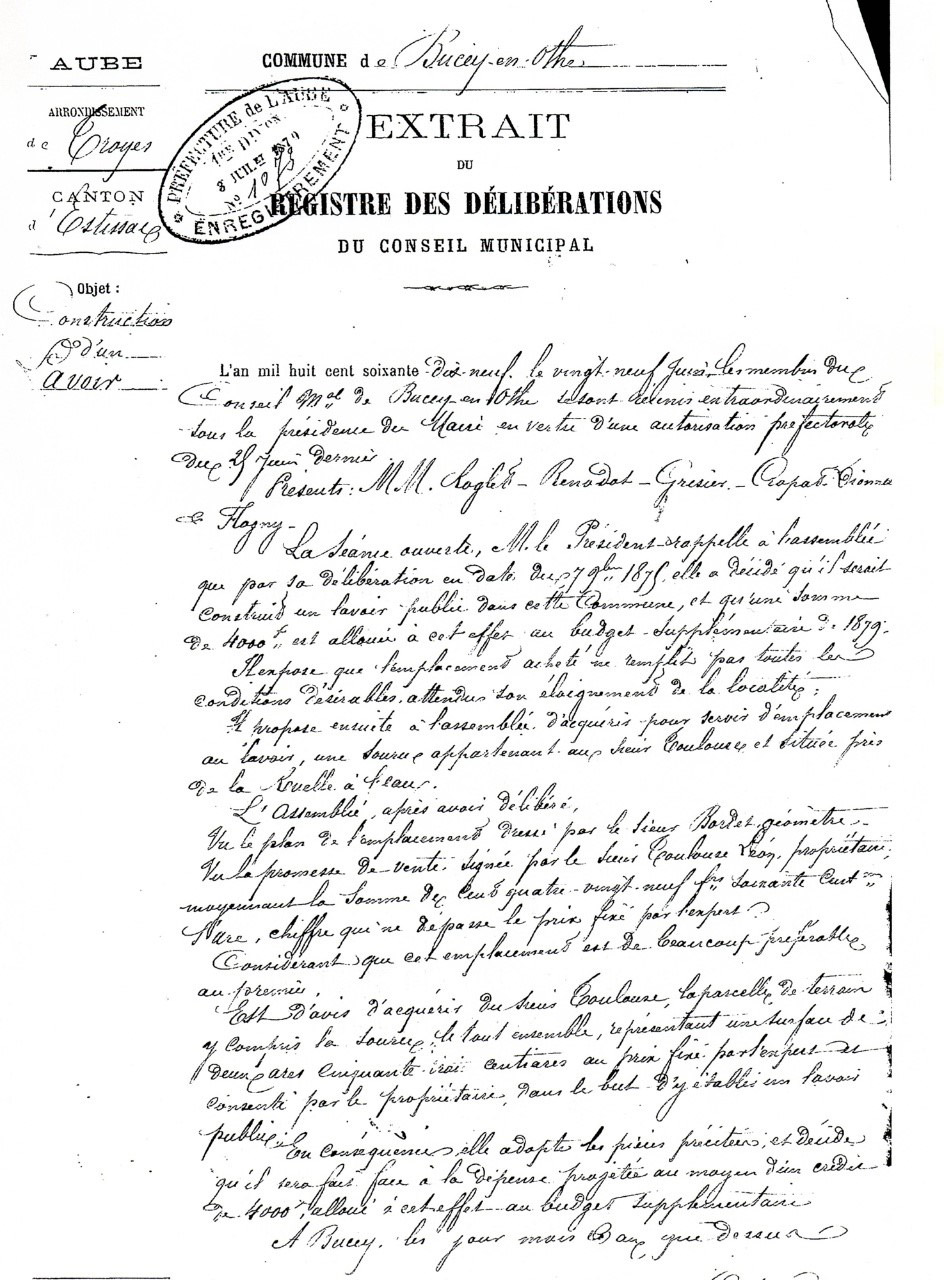 AUBE
ARRONDISSEMENT
de Troyes
CANTON
d'Estissac
Objet :
Construction
d'un
avoir
COMMUNE de Bucey-en-Othe
PRÉFECTURE de L'AUBE
1re DIVON
8 JUILET 1879
No
ENREGISTREMENT
EXTRAIT
DU
REGISTRE DES DÉLIBÉRATIONS
DU CONSEIL MUNICIPAL
L'an mil huit cent soixante dix-neuf, le vingt-neuf Juin, les membres du
Conseil Mal de Bucey en Othe se sont réunis extraordinairement
sous la présidence du Maire en vertu d'une autorisation préfectorale
du 25 Juin dernier
Présents : M.M. Roglet - Renodot - Grisier -
et Flogny -
La Séance ouverte, M. le Président rappelle à l'assemblée
que par sa délibération en date du 7 9bre 1875, elle a décidé qu'il serait
construit un lavoir public dans cette Commune, et qu'une somme
de 4000f est allouée à cet effet au budget supplémentaire de 1879.
Il expose que l'emplacement acheté ne remplit pas toutes les
conditions désirables, attendu son éloignement de la localité ;
Il propose ensuite à l'assemblée d'acquérir pour servir d'emplacement
au lavoir, une source appartenant au sieur Toulouse et située près
de la Ruelle à l'eau.
L'Assemblée, après avoir délibéré,
Vu le plan de l'emplacement dressé par le sieur Bordet, géomètre
Vu la promesse de vente signée par le sieur Toulouse Léon, propriétaire,
moyennant la somme de Cent quatre-vingt-neuf frs soixante Centmes
l'are, chiffre qui ne dépasse le prix fixé par l'expert
Considérant que cet emplacement est de beaucoup préférable
au premier,
Est d'avis d'acquérir du sieur Toulouse, la parcelle de terrain
y compris la source, le tout ensemble, représentant une surface de
deux ares cinquante trois centiares au prix fixé par l'expert et
consenti par le propriétaire, dans le but d'y établir un lavoir
public.
En conséquence, elle adopte les pièces précitées, et décide
qu'il sera fait face à la dépense projetée au moyen d'un crédit
de 4000f, alloué à cet effet au budget supplémentaire
A Bucey, les jour mois & an que dessus